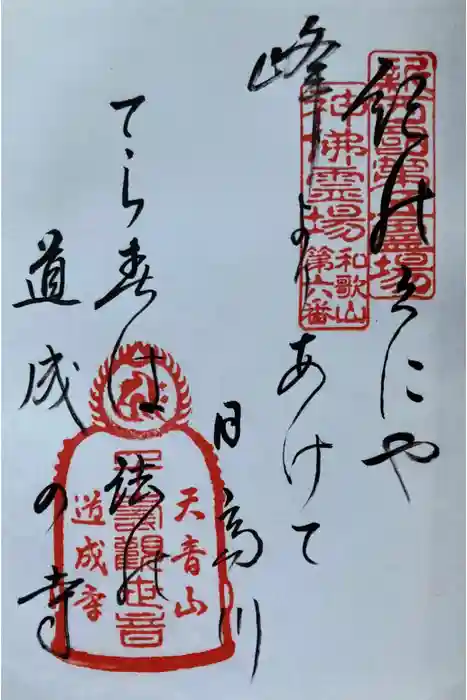 紀のくにや
峰よりあけて
日高川
てら春は法の
道成の寺
新西國第五霊場
神佛霊場
和歌山
第六番
觀世音
天音山
道成寺